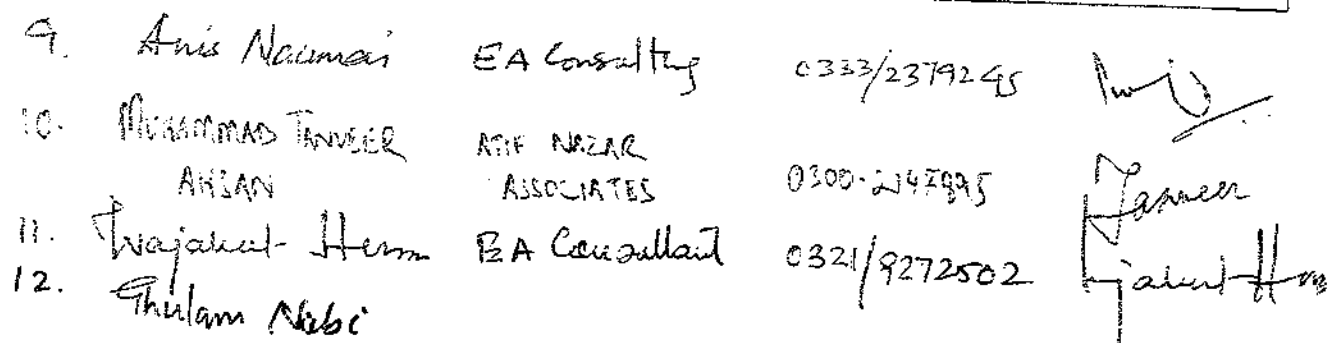 9. Anis Naumai EA Consulting 0333/2379245
10. MUHAMMAD TANVEER ATIF NAZAR
AHSAN ASSOCIATES 0300- Tanveer
11. Wajahat EA Consultant 0321/9272502 Wajahat
12. Ghulam Nabi